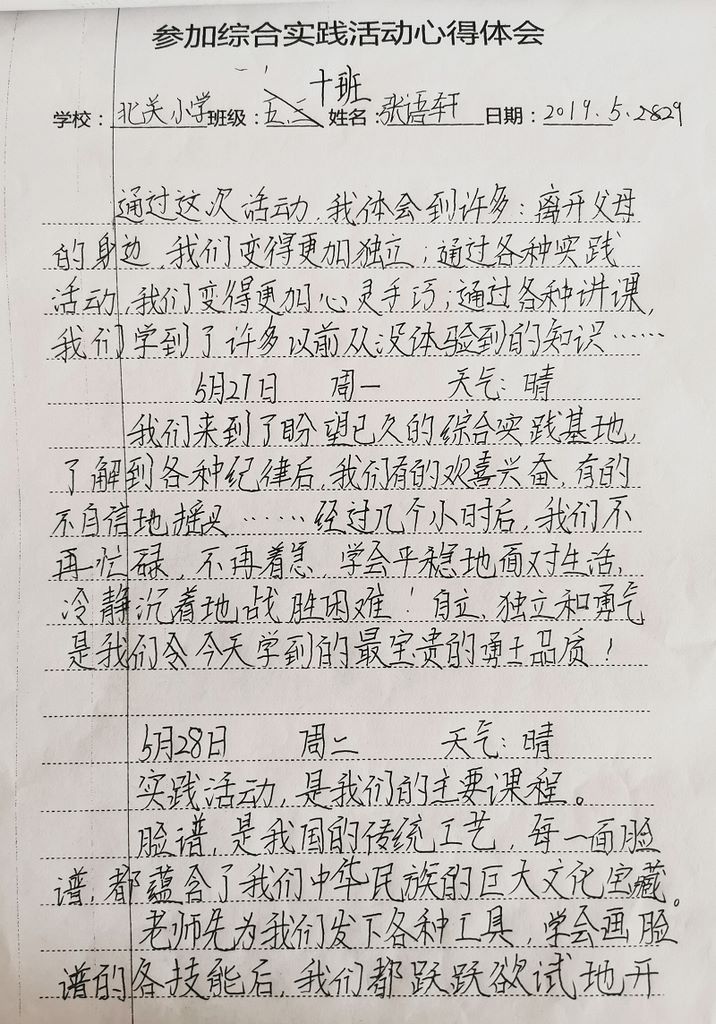 参加综合实践活动心得体会
十班
学校：北关小学班级：五.三姓名：张语轩日期：2019.5.2829
通过这次活动，我体会到许多：离开父母
的身边，我们变得更加独立；通过各种实践
活动，我们变得更加心灵手巧；通过各种讲课，
我们学到了许多以前从没体验到的知识……
5月27日 周一 天气：晴
我们来到了盼望已久的综合实践基地，
了解到各种纪律后，我们有的欢喜兴奋，有的
不自信地摇头……经过几个小时后，我们不
再忙碌，不再着急，学会平稳地面对生活，
冷静沉着地战胜困难！自立、独立和勇气
是我们令今天学到的最宝贵的勇士品质！
5月28日 周二 天气：晴
实践活动，是我们的主要课程。
脸谱，是我国的传统工艺，每一面脸
谱，都蕴含了我们中华民族的巨大文化宝藏。
老师先为我们发下各种工具，学会画脸
谱的各技能后，我们都跃跃欲试地开